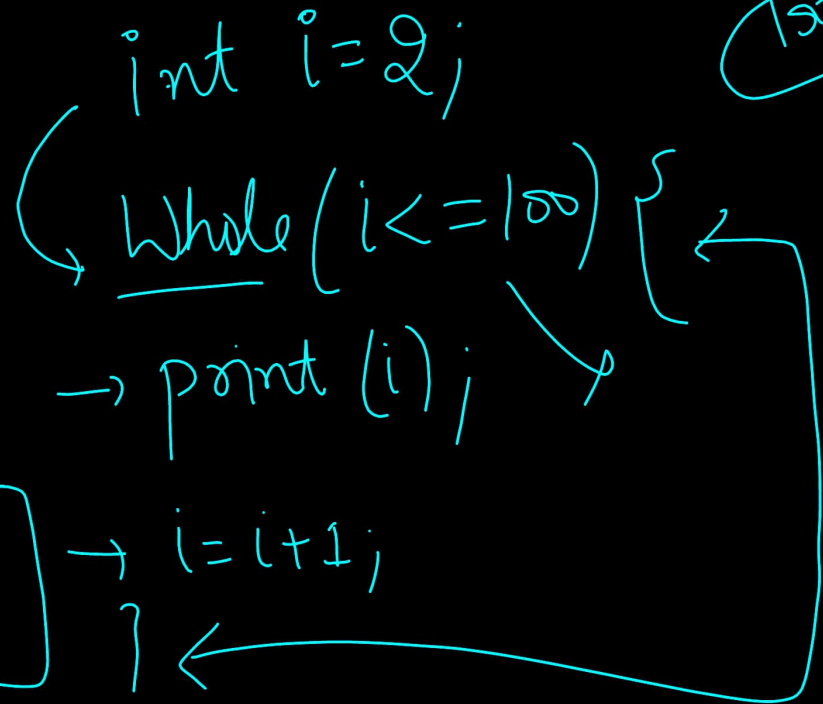 int i=2;
while(i<=100){
print(i);
i=i+1;
}